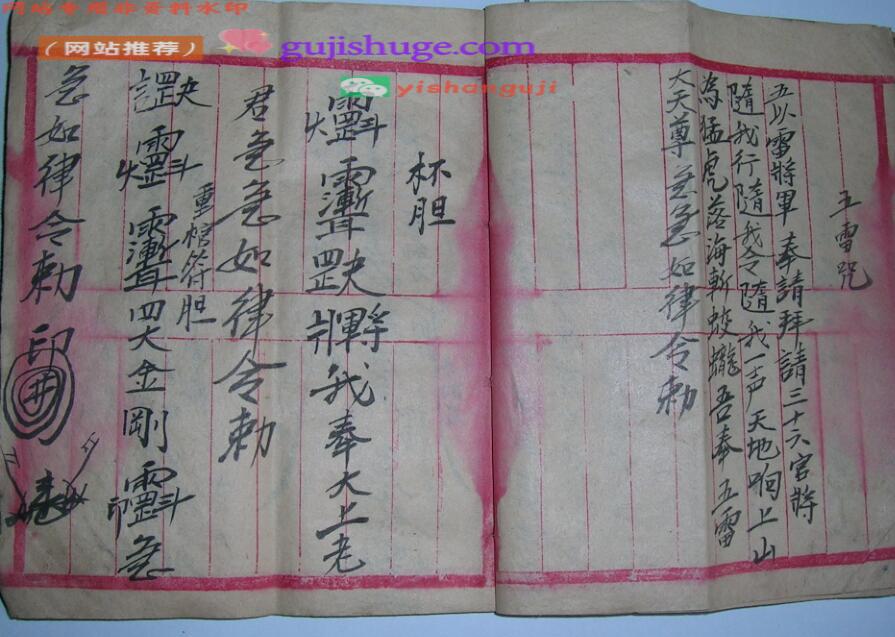 网站专用非资料水印
(网站推荐)
gujishuge.com
yishanguji
五雷咒
五以雷將軍奉請拜請三十六官將
隨我行隨我令隨我一声天地响上山
為猛虎落海斬蛟蠬吾奉五雷
大天尊急急如律令勅
杯胆
我奉大上老
君急急如律令勅
重棺符胆
四大金剛
急
急如律令勅
印
井